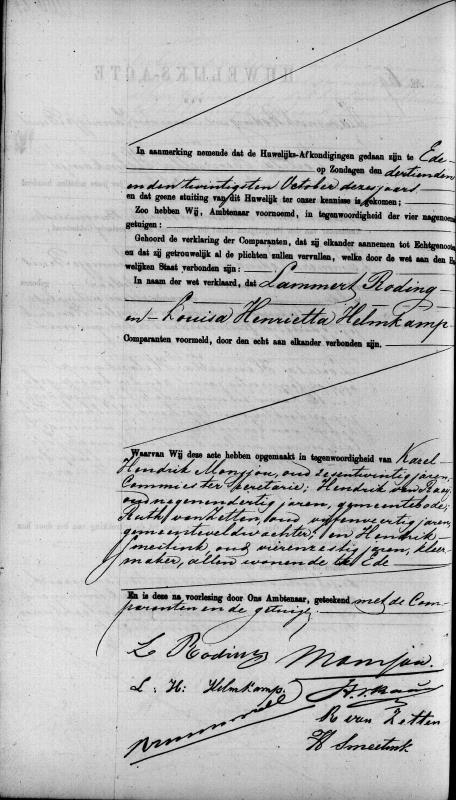 In aanmerking nemende dat de Huwelijks-Afkondigingen gedaan zijn te Ede
op Zondagen den dertienden
en den twintigsten October dezes jaars
en dat geene stuiting van dit Huwelijk ter onzer kennisse is gekomen;
Zoo hebben Wij, Ambtenaar voornoemd, in tegenwoordigheid der vier nagenoemde
getuigen:
Gehoord de verklaring der Comparanten, dat zij elkander aannemen tot Echtgenooten
en dat zij getrouwelijk al de plichten zullen vervullen, welke door de wet aan den
welijken Staat verbonden zijn:
In naam der wet verklaard, dat Lammert Roding
en Louisa Henrietta Helmkamp
Comparanten voormeld, door den echt aan elkander verbonden zijn.
Waarvan Wij deze acte hebben opgemaakt in tegenwoordigheid van Karel
Hendrik Monjou, oud zesentwintig jaren,
Commies ter secretarie; Hendrik van
oud negenendertig jaren, gemeentebode;
Ruth van Zetten, oud vijfenveertig jaren,
gemeenteveldwachter; en Hendrik
Smeitink, oud vierenzestig jaren, kleer-
maker, allen wonende te Ede
En is deze na voorlezing door Ons Ambtenaar, geteekend met de Com-
paranten en de getuigen
L Roding Monjou.
L. H: Helmkamp.
R van Zetten
H Smeetink